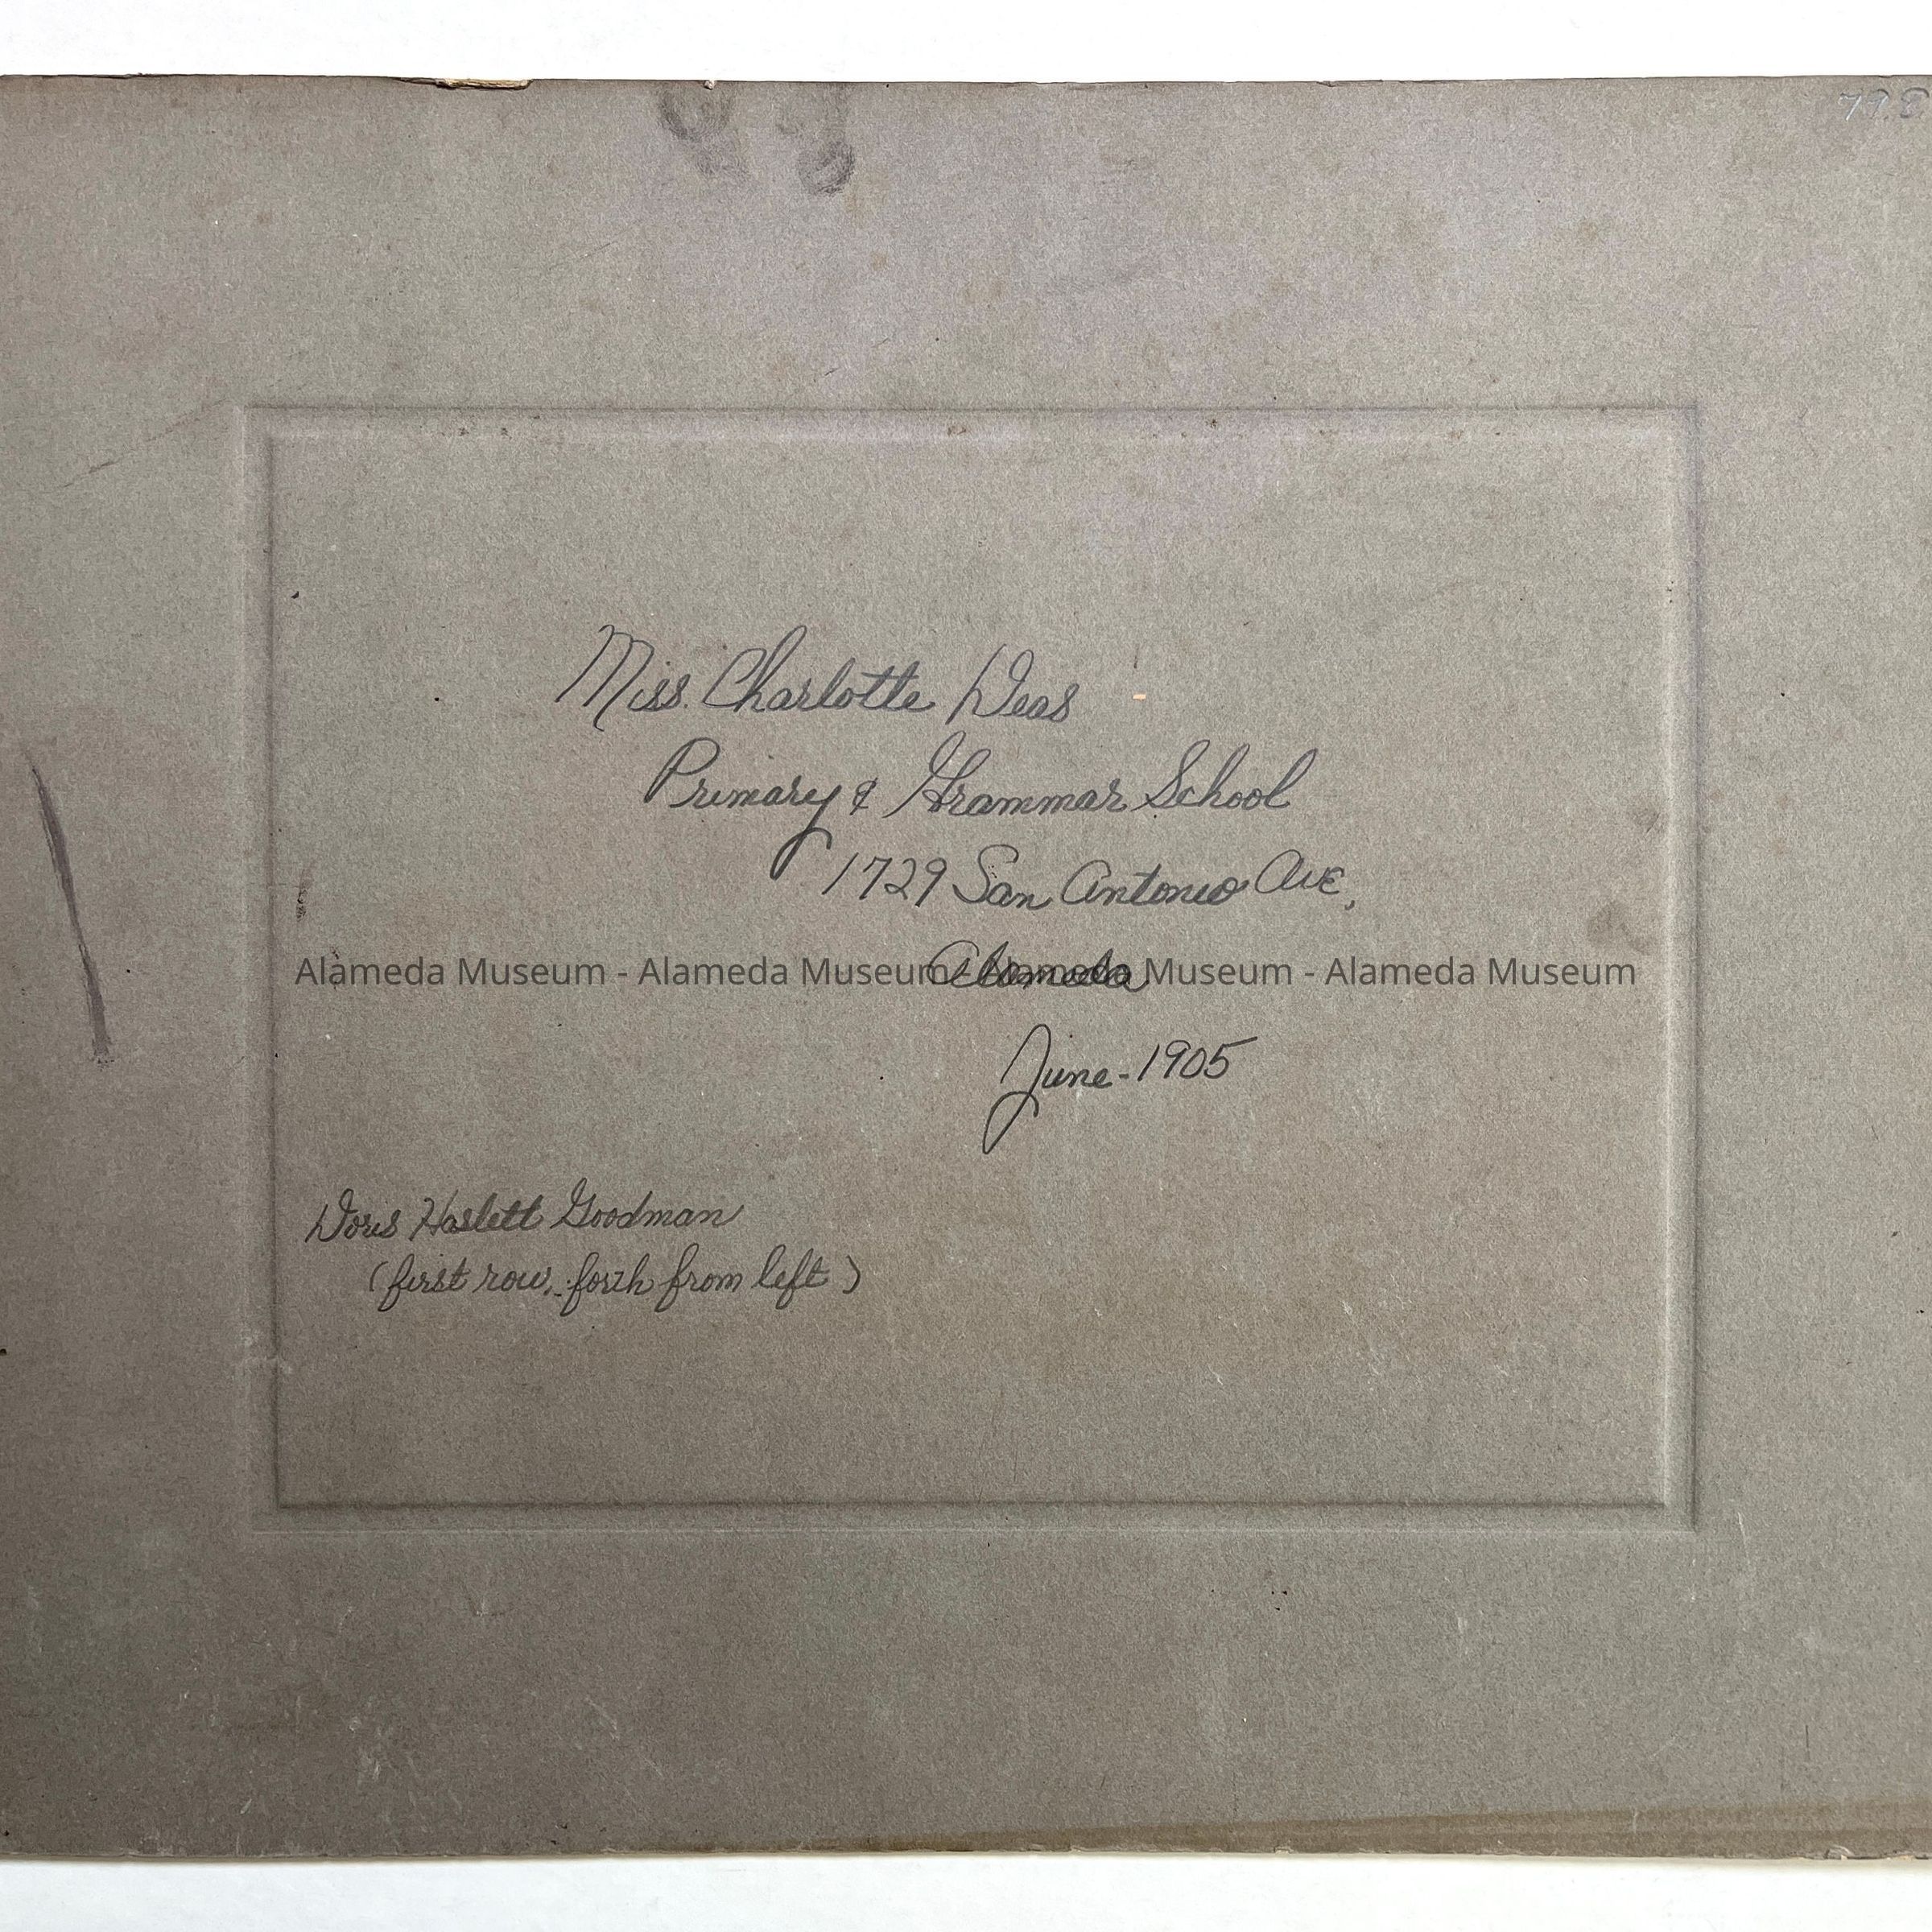 79.8
Miss. Charlotte Deas
Primary & Grammar School
1729 San Antonio Ave,
Alameda Museum - Alameda Museum - Alameda Museum - Alameda Museum
Alameda
June - 1905
Doris Haslett Goodman
(first row, forth from left)